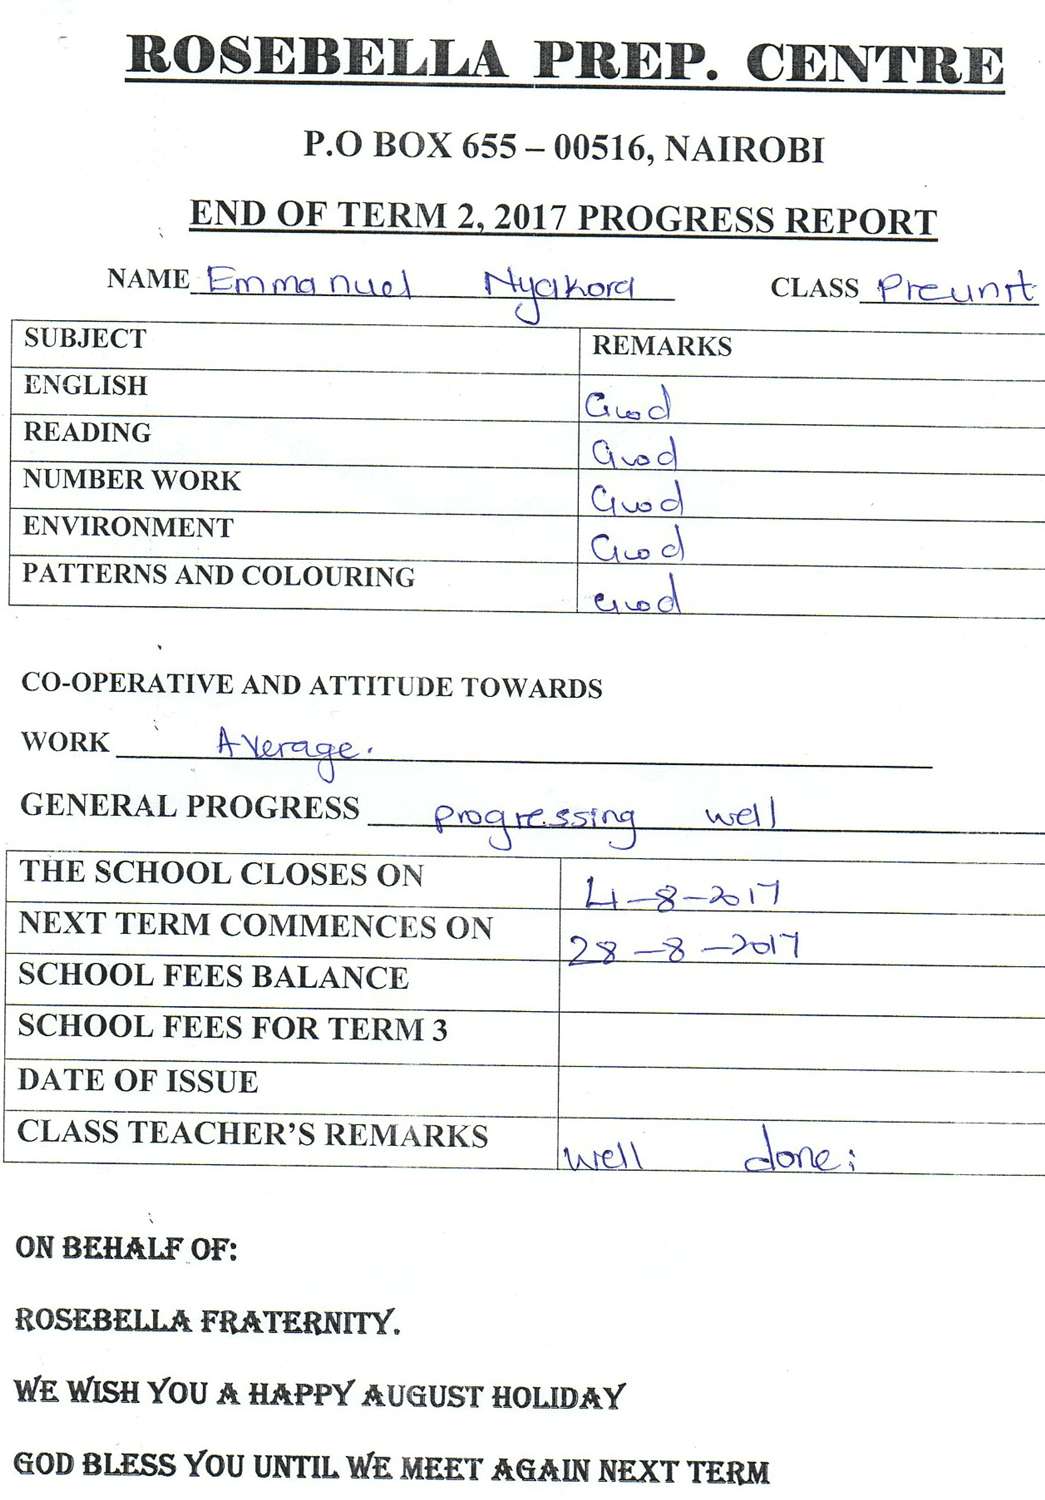 ROSEBELLA PREP. CENTRE
P.O BOX 655 – 00516, NAIROBI
END OF TERM 2, 2017 PROGRESS REPORT
NAME Emmanuel Nyakora CLASS Preunit
SUBJECT REMARKS
ENGLISH Good
READING Good
NUMBER WORK Good
ENVIRONMENT Good
PATTERNS AND COLOURING Good
CO-OPERATIVE AND ATTITUDE TOWARDS
WORK Average.
GENERAL PROGRESS progressing well
THE SCHOOL CLOSES ON 4-8-2017
NEXT TERM COMMENCES ON 28-8-2017
SCHOOL FEES BALANCE
SCHOOL FEES FOR TERM 3
DATE OF ISSUE
CLASS TEACHER'S REMARKS well done;
ON BEHALF OF:
ROSEBELLA FRATERNITY.
WE WISH YOU A HAPPY AUGUST HOLIDAY
GOD BLESS YOU UNTIL WE MEET AGAIN NEXT TERM